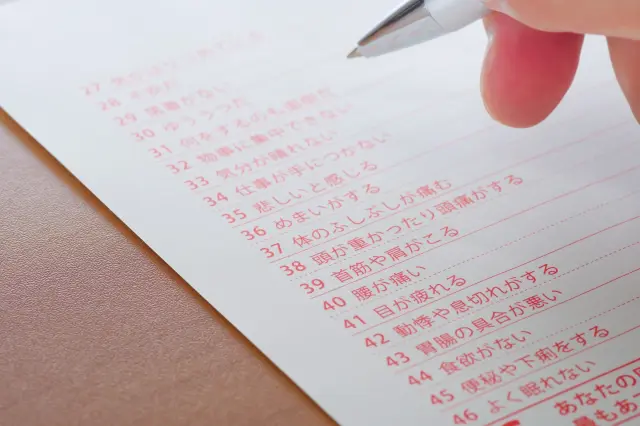 27
28
29 元気がない
30 ゆううつだ
31 何をするのも面倒だ
32 物事に集中できない
33 気分が晴れない
34 仕事が手につかない
35 悲しいと感じる
36 めまいがする
37 体のふしぶしが痛む
38 頭が重かったり頭痛がする
39 首筋や肩がこる
40 腰が痛い
41 目が疲れる
42 動悸や息切れがする
43 胃腸の具合が悪い
44 食欲がない
45 便秘や下痢をする
46 よく眠れない
あなたの
最もあ